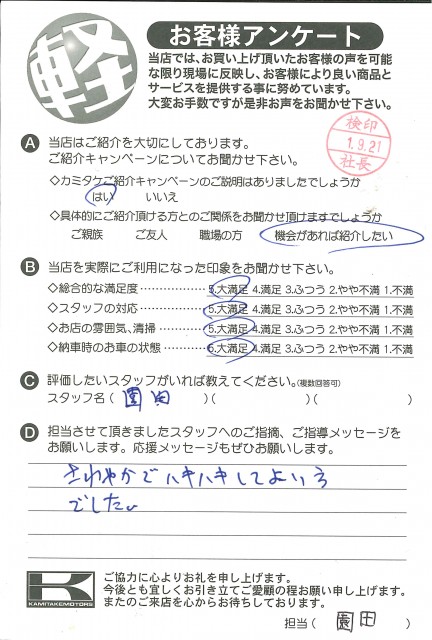 軽
お客様アンケート
当店では、お買い上げ頂いたお客様の声を可能
な限り現場に反映し、お客様により良い商品と
サービスを提供する事に努めています。
大変お手数ですが是非お声をお聞かせ下さい。
検印
1.9.21
社長
A 当店はご紹介を大切にしております。
ご紹介キャンペーンについてお聞かせ下さい。
◇カミタケご紹介キャンペーンのご説明はありましたでしょうか
はい いいえ
◇具体的にご紹介頂ける方とのご関係をお聞かせ頂けますでしょうか
ご親族 ご友人 職場の方 機会があれば紹介したい
B 当店を実際にご利用になった印象をお聞かせ下さい。
◇総合的な満足度 5.大満足 4.満足 3.ふつう 2.やや不満 1.不満
◇スタッフの対応 5.大満足 4.満足 3.ふつう 2.やや不満 1.不満
◇お店の雰囲気、清掃 5.大満足 4.満足 3.ふつう 2.やや不満 1.不満
◇納車時のお車の状態 5.大満足 4.満足 3.ふつう 2.やや不満 1.不満
C 評価したいスタッフがいれば教えてください。(複数回答可)
スタッフ名 ( 園田 )( )( )
D 担当させて頂きましたスタッフへのご指摘、ご指導メッセージを
お願いします。応援メッセージもぜひお願いします。
さわやかでハキハキしてよいろ
でした。
K
KAMITAKEMOTORS
ご協力に心よりお礼を申し上げます。
今後とも宜しくお引き立てご愛顧の程お願い申し上げます。
またのご来店を心からお待ちしております。
担当 ( 園田 )